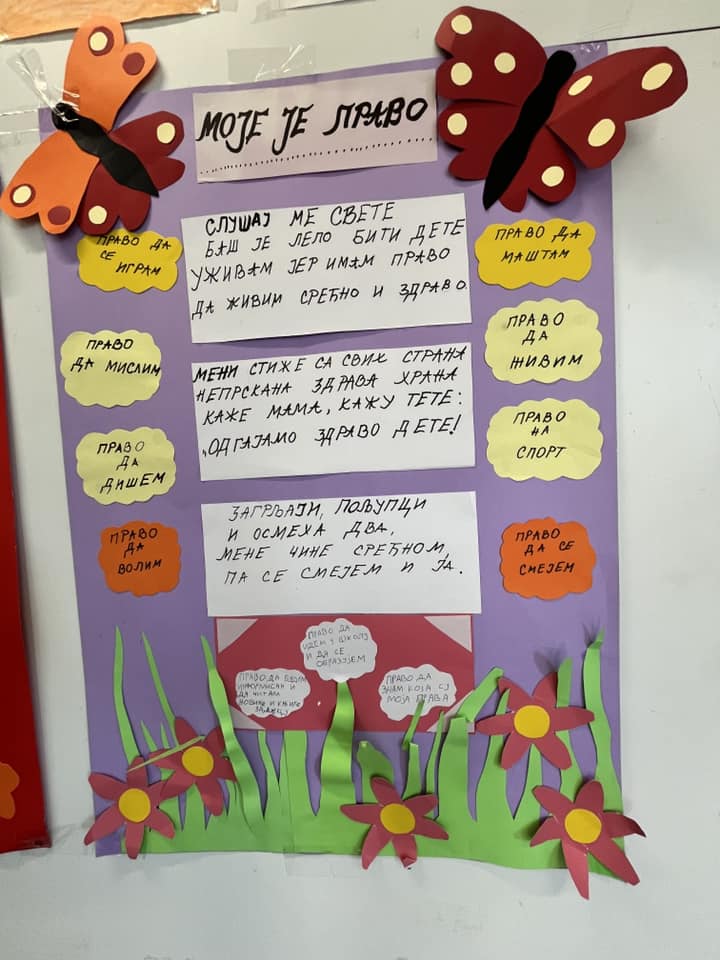 МОЈЕ ЈЕ ПРАВО
СЛУШАЈ МЕ СВЕТЕ
БАШ ЈЕ ЛЕПО БИТИ ДЕТЕ
УЖИВАМ ЈЕР ИМАМ ПРАВО
ДА ЖИВИМ СРЕЋНО И ЗДРАВО.
МЕНИ СТИЖЕ СА СВИХ СТРАНА
НЕПРСКАНА ЗДРАВА ХРАНА
КАЖЕ МАМА, КАЖУ ТЕТЕ:
„ОДГАЈАМО ЗДРАВО ДЕТЕ!
ЗАГРЉАЈИ, ПОЉУПЦИ
И ОСМЕХА ДВА,
МЕНЕ ЧИНЕ СРЕЋНОМ,
ПА СЕ СМЕЈЕМ И ЈА.
ПРАВО ДА
СЕ
ИГРАМ
ПРАВО
ДА МИСЛИМ
ПРАВО
ДА
ДИШЕМ
ПРАВО
ДА
ВОЛИМ
ПРАВО ДА
МАШТАМ
ПРАВО
ДА
ЖИВИМ
ПРАВО
НА
СПОРТ
ПРАВО
ДА СЕ
СМЕЈЕМ
ПРАВО ДА
ИДЕМ У ШКОЛУ
И ДА СЕ
ОБРАЗУЈЕМ
ПРАВО ДА БУДЕМ
ИНФОРМИСАН И
ДА ЧИТАМ
НОВИНЕ И КЊИГЕ
ПРАВО ДА
ЗНАМ КОЈА СУ
МОЈА ПРАВА